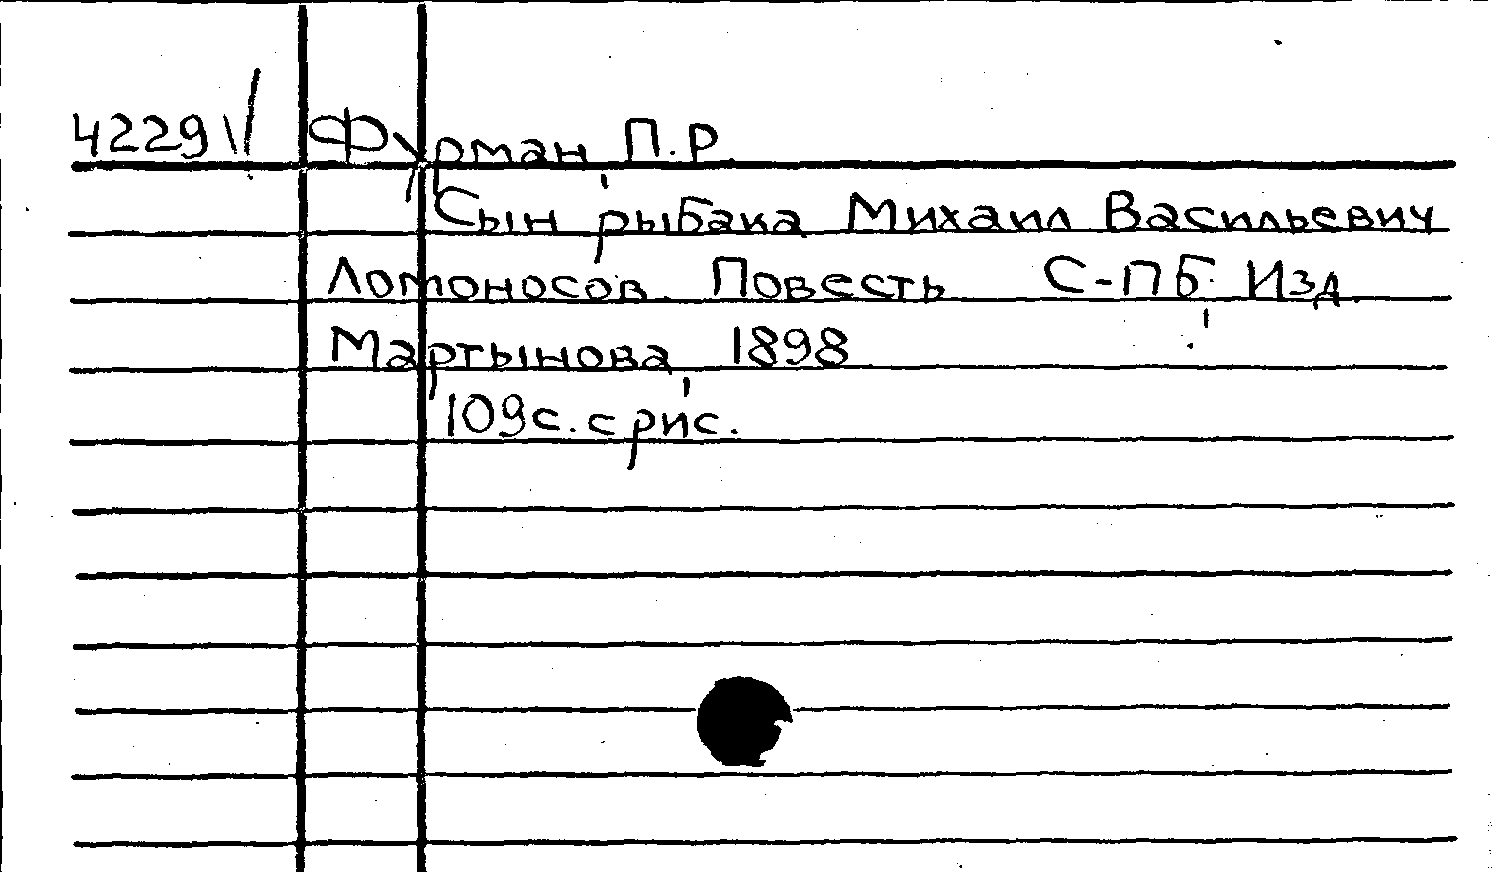 42291/ Фурман, П.Р.
Сын рыбака Михаил Васильевич
Ломоносов. Повесть С-ПБ., Изд.
Мартынова, 1898
109с. с рис.